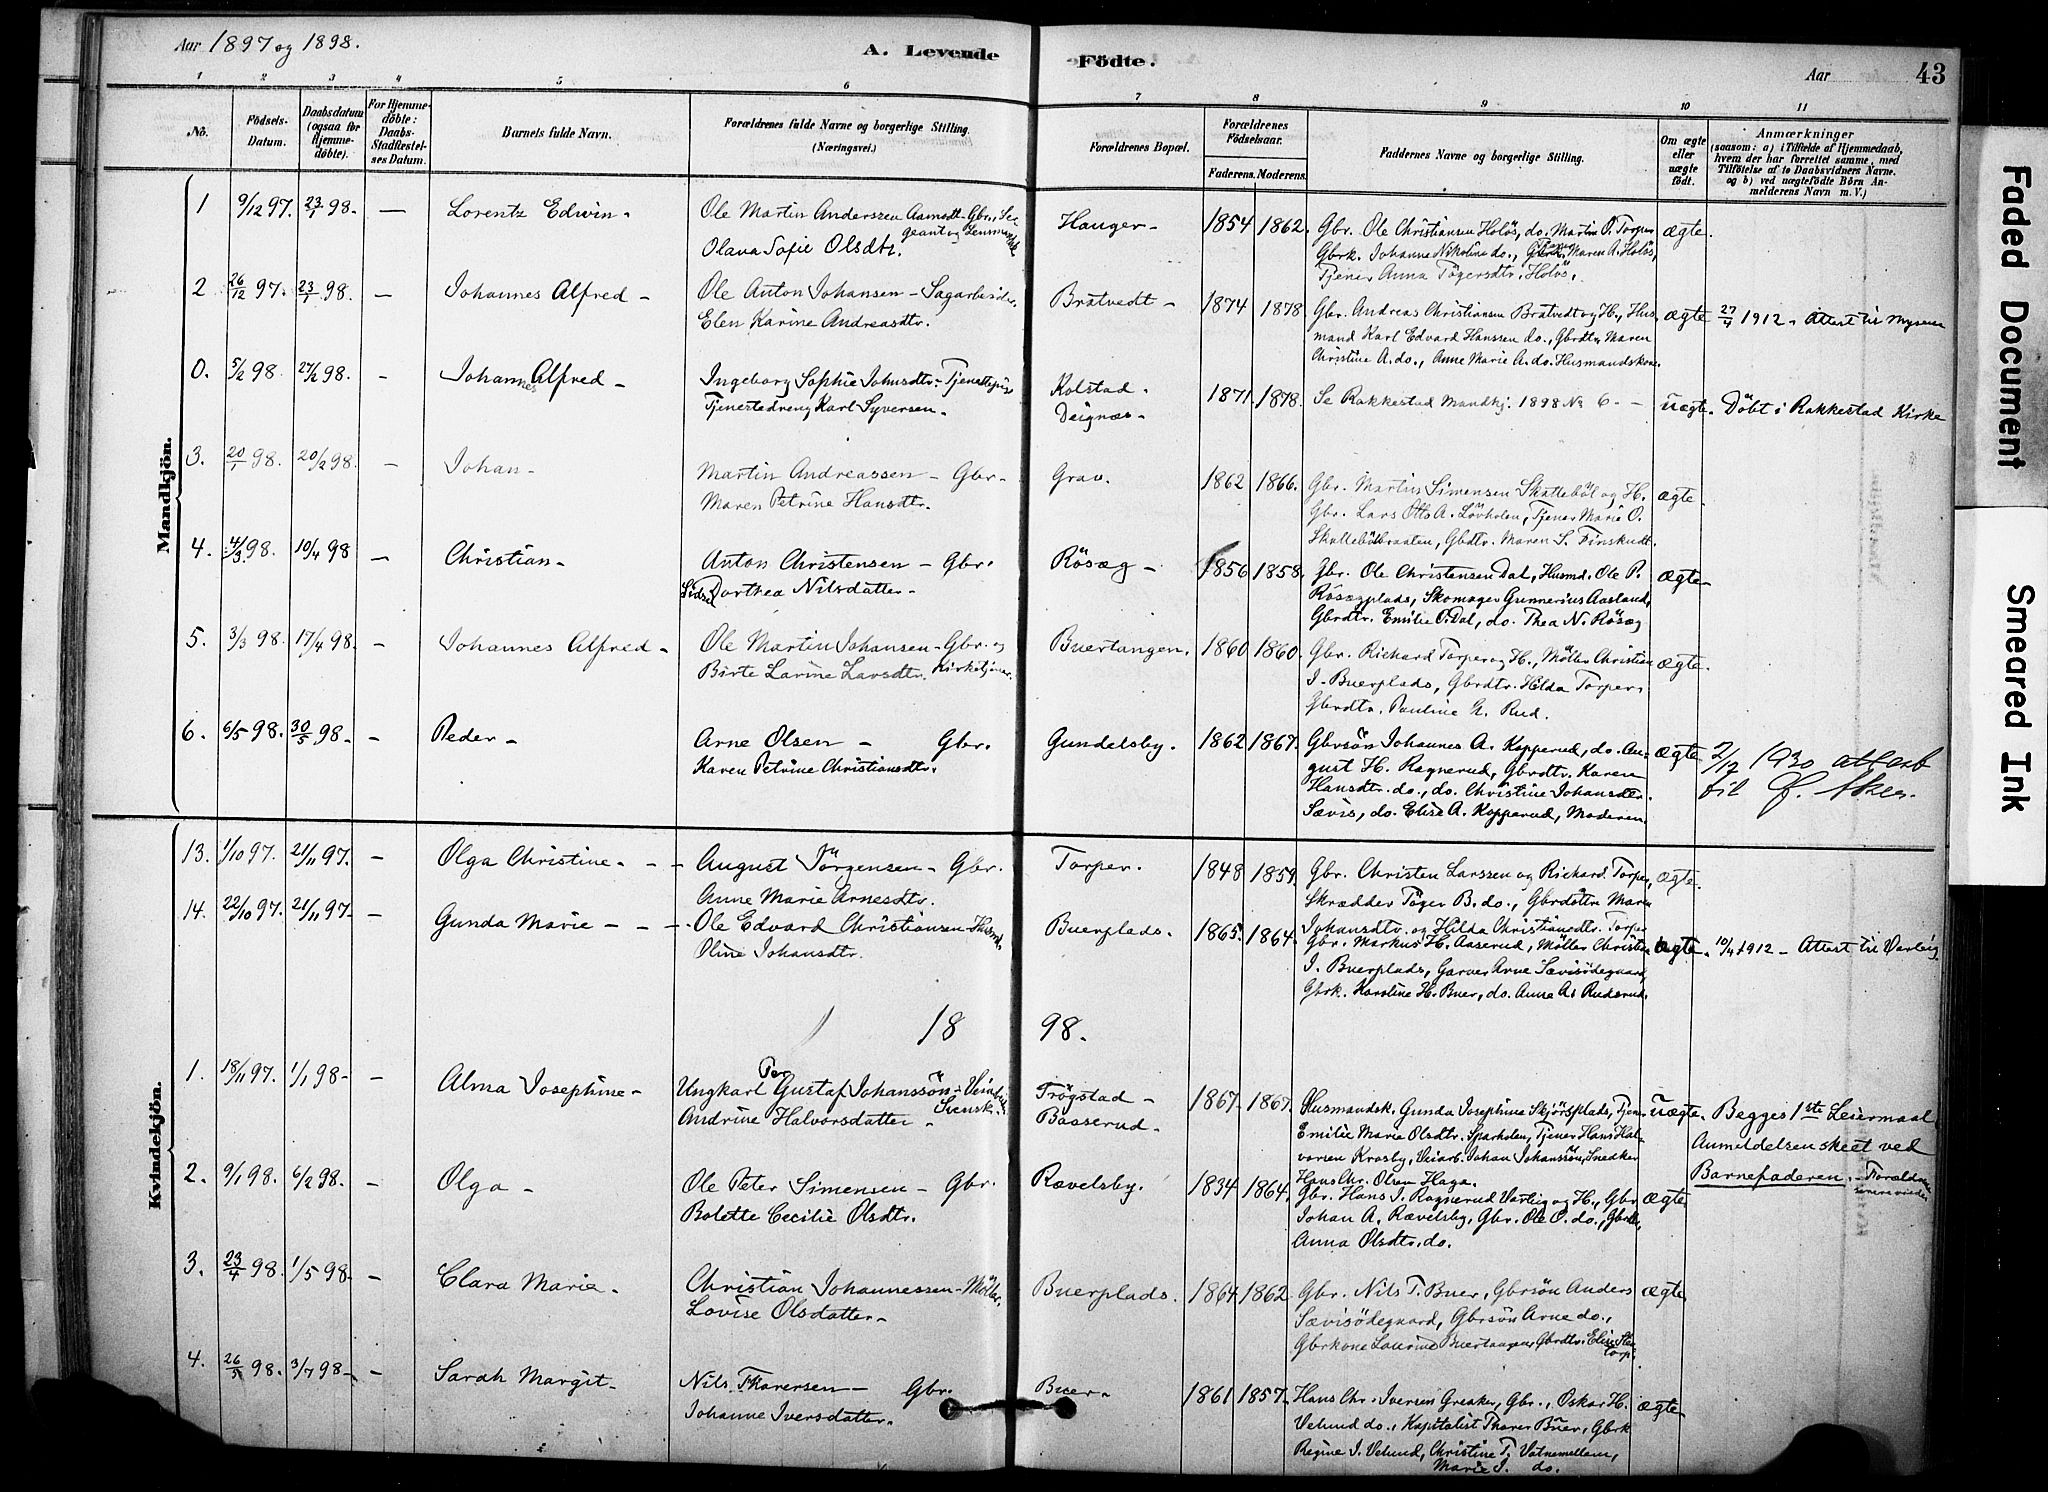 Aar 1897 og 1898.
A. Levende
Födte.
Aar
43
1 2 3 4 5 6 7 8 9 10 11
No.
Födsels-Datum.
Daabsdatum (ogsaa for Hjemmedöbte).
For Hjemmedöbte: Daabs-Stadfæstelses Datum.
Barnets fulde Navn.
Forældrenes fulde Navne og borgerlige Stilling. (Næringsvei.)
Forældrenes Bopæl.
Forældrenes Födselsaar.
Faderens. Moderens.
Faddernes Navne og borgerlige Stilling.
Om ægte eller uægte født.
Anmærkninger
(saasom: a) i Tilfælde af Hjemmedaab,
hvem der har forrettet samme, med
Tilföielse af to Daabsvidners Navne.
og b) ved uægtefödte Börn An-
melderens Navn m. V.)
Mandkjön.
1 9/12 97. 23/1 98. — Lorentz Edwin - Ole Martin Anderssen Aamodt - Gbr., Ser-
geant og Lensmand
Olava Sofie Olsdtr.
Hauger - 1854 1862. Gbr. Ole Christiansen Holös, do. Martin O. Torper ægte.
Gbrk. Johanne Nikoline do., Maren A. Holös,
Tjener Anna Tögersdtr. Holös.
2 26/12 97. 23/1 98. — Johannes Alfred - Ole Anton Johansen - Sagarbeider.
Elen Karine Andreasdtr.
Bratvedt - 1874 1878. Gbr. Andreas Christiansen Bratvedt og H., Hus- ægte 27/4 1912. Attest til Mysen
mand Karl Edvard Hanssen do., Gbrdtr. Maren
Christine A. do., Anne Marie A. do. Husmandskone
0. 5/2 98. 27/2 98. - Johannes Alfred - Ingeborg Sophie Johnsdtr. - Tjenestepige
Tjenestedreng Karl Syversen.
Kolstad.
Deignæs -
1871 1878. Se Rakkestad Mandkj. 1898 No 6. - uægte. Döbt i Rakkestad Kirke
3. 20/1 98. 20/2 98. - Johan - Martin Andreassen - Gbr.
Maren Petrine Hansdtr.
Grav. 1862 1866. Gbr. Martin Simensen Skattebøl og H. ægte.
Gbr. Lars Otto A. Lövholen, Tjener Marie O.
Skattebölbraaten, Gbdtr. Maren S. Finskudt.
4. 4/3 98. 10/4 98 - Christian - Anton Christensen - Gbr.
Sidsel Dorthea Nilsdatter -
Rösæg - 1856 1858. Gbr. Ole Christensen Dal, Husmd. Ole P. ægte -
Rösægplads, Skomager Gunnerius Aasland,
Gbrdtr. Emilie O. Dal, do. Thea N. Rösæg
5. 3/3 98. 17/4 98. - Johannes Alfred - Ole Martin Johansen - Gbr. og
Kirketjener.
Birte Larine Larsdtr.
Buertangen. 1860 1860. Gbr. Richard Torper og H., Möller Christian ægte.
J. Buerplads, Gbrdtr. Hilda Torper,
Gbrdtr. Pauline Rud.
6. 6/5 98. 30/5 98. - Peder - Arne Olsen - Gbr.
Karen Petrine Christiansdtr.
Gundelsby. 1862 1867. Gbrsön Johannes A. Kopperud, do. Au- ægte 2/12 1930 attest
gust H. Ragnerud, Gbrdtr. Karen
Hansdtr. do., do. Christine Johansdtr.
Sævis, do. Elise A. Kopperud, Moderen.
til Aker.
Kvindekjön.
13. 1/10 97. 21/11 97. - Olga Christine. - - August Jörgensen - Gbr.
Anne Marie Arnesdtr.
Torper. 1848 1859. Gbr. Christen Larssen og Richard Torper, ægte.
Skrædder Töger B. do., Gbrdattr Maren
Johansdtr. og Hilda Christiansdtr. Torper
14. 22/10 97. 21/11 97. - Gunda Marie - - - Ole Edvard Christiansen - Husmd.
Oline Johansdtr.
Buerplads. 1865. 1864. Gbr. Markus H. Aaserud, Möller Christian ægte. 10/4 1912 - Attest til Varteig.
J. Buerplads, Garver Arne Sævisödegaard,
Gbrk. Karoline H. Buer, do. Anne A. Ruderud.
1898.
1. 18/11 97. 1/1 98- - Alma Josephine - Ungkarl Per Gustaf Johanssön - Veiarb.
Svensk.
Andrine Halvorsdatter -
Trögstad -
Basserud -
1867. 1867. Husmandsk. Gunda Josephine Skjörsplads, Tjen. uægte. Begges 1ste Leiermaal
Emilie Marie Olsdtr. Sparholen, Tjener Hans Hal-
vorsen Krosby, Veiarb. Johan Johanssön, Snedker
Hans Chr. Olsen Haga.
Anmeldelsen skeet ved
Barnefaderen. - Forældrene
2. 9/1 98. 6/2 98. - Olga - Ole Peter Simensen - Gbr.
Bolette Cecilie Olsdtr.
Rævelsby. 1834 1864. Gbr. Hans J. Ragnerud Varteig og H., Gbr ægte
Johan A. Rævelsby, Gbr. Ole O. do., Gbrdtr.
Anna Olsdtr. do.
3. 23/4 98. 1/5 98. - Clara Marie - Christian Johannessen - Möller.
Lovise Olsdatter -
Buerplads. 1864 1862 Gbr. Nils T. Buer, Gbrsön Anders ægte
Sævisödegaard, Gbrsön Arne do.,
Gbrkone Laurine Buertangen, Gbrdtr. Elise Sten
torp.
4. 26/5 98. 3/7 98. - Sarah Margit - Nils Tharersen - Gbr.
Johanne Iversdatter.
Buer. 1861 1857. Hans Chr. Iversen Greaker, Gbr., Oskar H. ægte
Velund do., Kapitalist Tharer Buer, Gbrk
Regine J. Velund, Christine T. Vatnemellem,
Marie J. do.
Faded Document
Smeared Ink